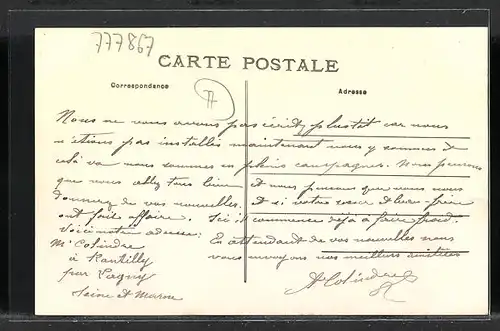 777867
CARTE POSTALE
Correspondance
Adresse
77
Nous ne vous avons pas écrit plustôt car nous
n'étions pas installés maintenant nous y sommes &
celà va nous sommes en pleine campagne. Nous pensons
que vous allez tous bien
donnez de vos nouvelles.
ont fait affaire.
Voici notre adresse:
Mr Colindre
à Rentilly
par Lagny
Seine et Marne
et nous pensons que vous nous
Et si votre soeur et leur frère
Ici il commence déjà à faire froid.
En attendant de vos nouvelles nous
vous envoyons nos meilleurs amitiés
Colindre